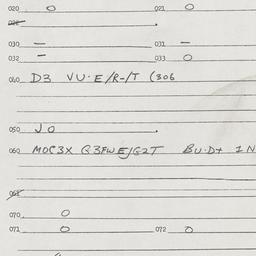 020 0 021 0
022
030 — 031 —
032 — 033 0
040 D3 VU·E/R-/T (306
050 J0
060 MOC3X Q3FWE/G2T BU·D+ IN
061
070 0
071 0 072 0